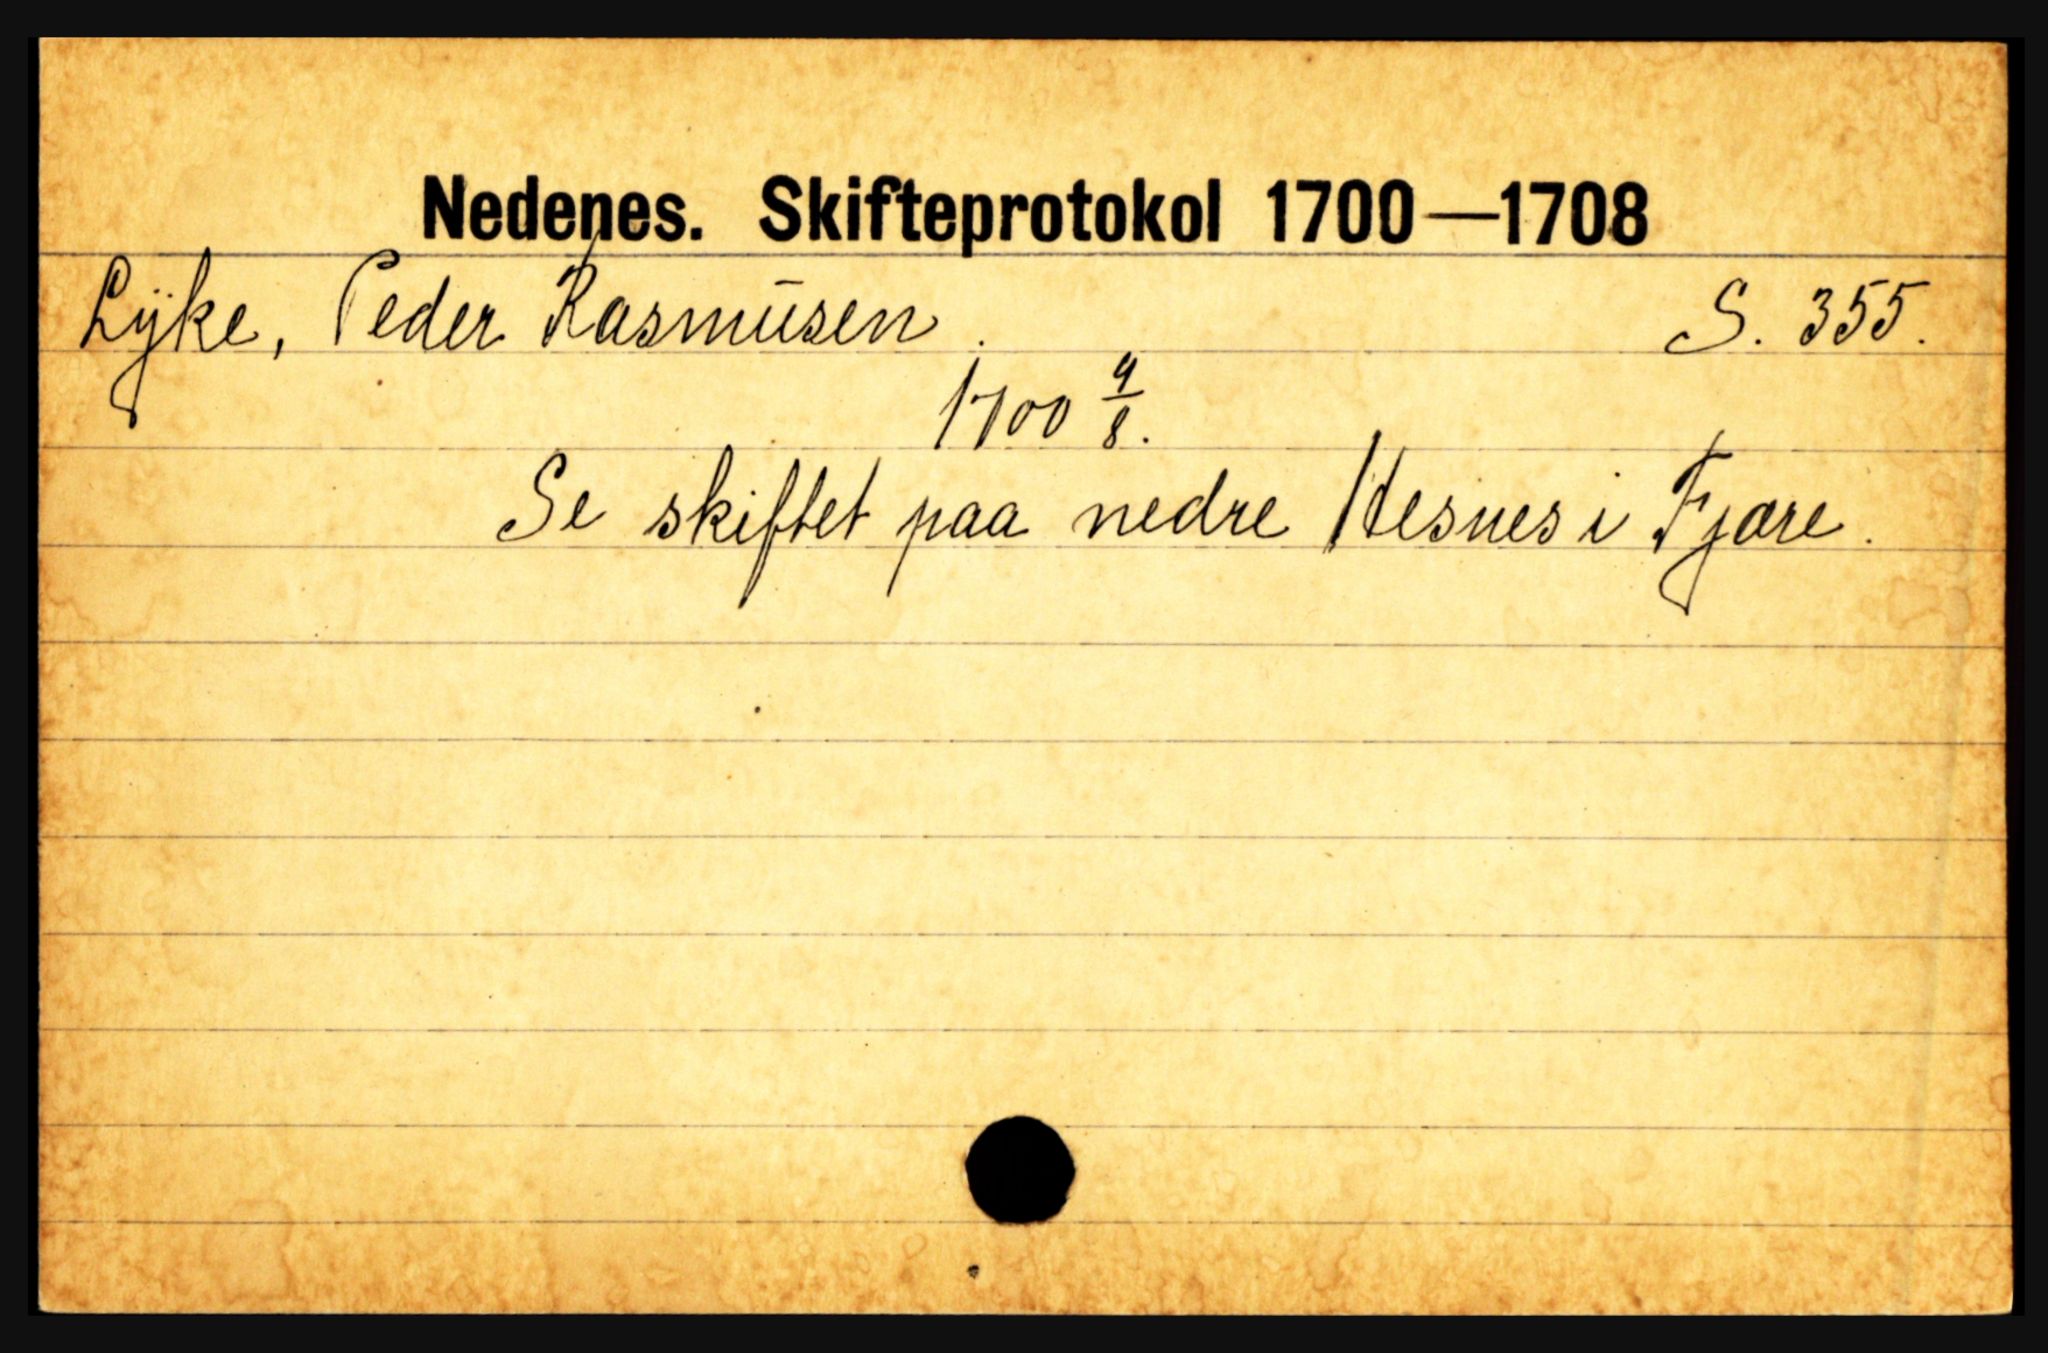 Nedenes. Skifteprotokol 1700—1708
Lÿke, Peder Rasmūsen. S. 355.
1700 9/8.
Se skiftet paa nedre Hesnes i Fjære.